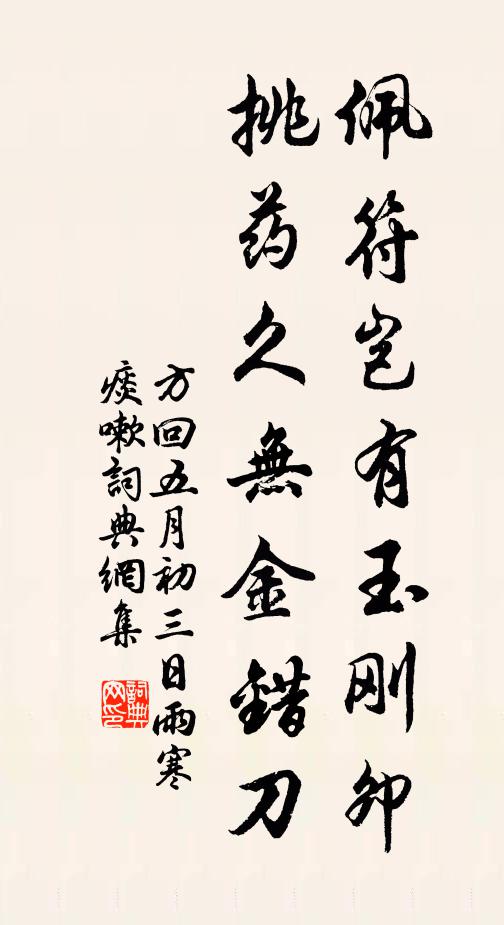 佩符岂有玉刚卯
挑药久無金錯刀
方回五月初三日雨寒
痰嗽詞典網集
詞典网印